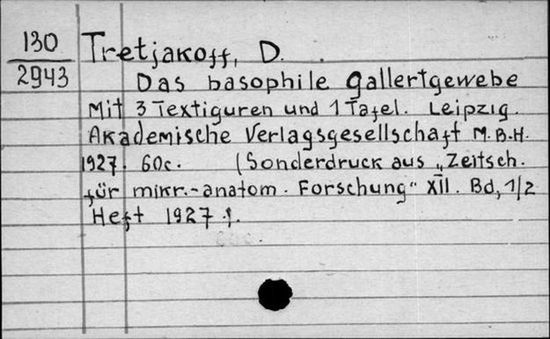 130
2943
Tretjakoff, D.
Das basophile Gallertgewebe
Mit 3 Textiguren und 1 Tafel. Leipzig.
Akademische Verlagsgesellschaft M.B.H.
1927. 60c. (Sonderdruck aus "Zeitsch.
für mikr.-anatom. Forschung" XII. Bd, 1/2
Heft 1927 j.